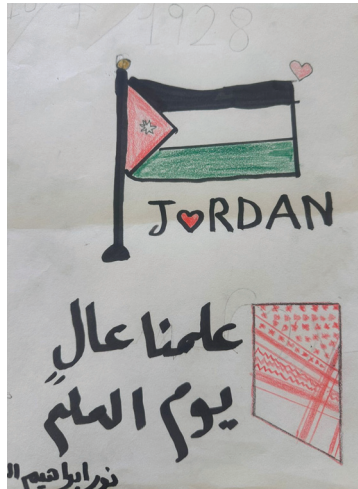 1928
JORDAN
علمنا عالٍ
يوم العلم
نور ابراهيم